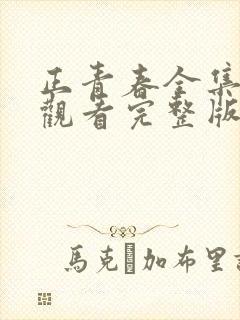 正青春全集
觀看完整版
馬克 加布里